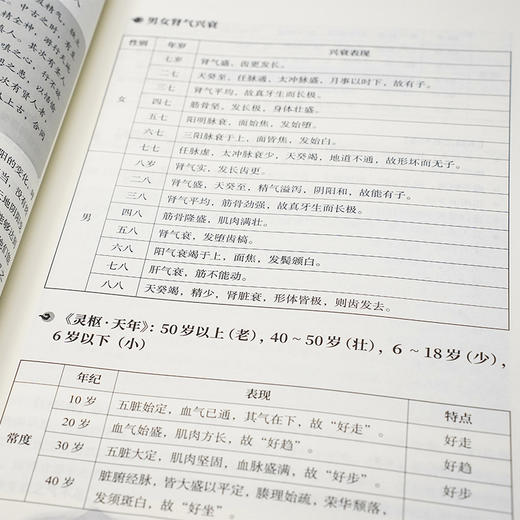 男女肾气兴衰
性别 年岁 兴衰表现
女 七岁 肾气盛，齿更发长。
二七 天癸至，任脉通，太冲脉盛，月事以时下，故有子。
三七 肾气平均，故真牙生而长极。
四七 筋骨坚，发长极，身体壮盛。
五七 阳明脉衰，面始焦，发始堕。
六七 三阳脉衰于上，面皆焦，发始白。
七七 任脉虚，太冲脉衰少，天癸竭，地道不通，故形坏而无子。
男 八岁 肾气实，发长齿更。
二八 肾气盛，天癸至，精气溢泻，阴阳和，故能有子。
三八 肾气平均，筋骨劲强，故真牙生而长极。
四八 筋骨隆盛，肌肉满壮。
五八 肾气衰，发堕齿槁。
六八 阳气衰竭于上，面焦，发鬓颁白。
七八 肝气衰，筋不能动。
八八 天癸竭，精少，肾脏衰，形体皆极，则齿发去。
《灵枢·天年》：50岁以上（老），40～50岁（壮），6～18岁（少），
6岁以下（小）
年纪 表现 特点
常度 10岁 五脏始定，血气已通，其气在下，故“好走”。 好走
20岁 血气始盛，肌肉方长，故“好趋”。 好趋
30岁 五脏大定，肌肉坚固，血脉盛满，故“好步”。 好步
40岁 脏腑经脉，皆大盛以平定，腠理始疏，荣华颓落，
发须斑白，故“好坐” 好坐